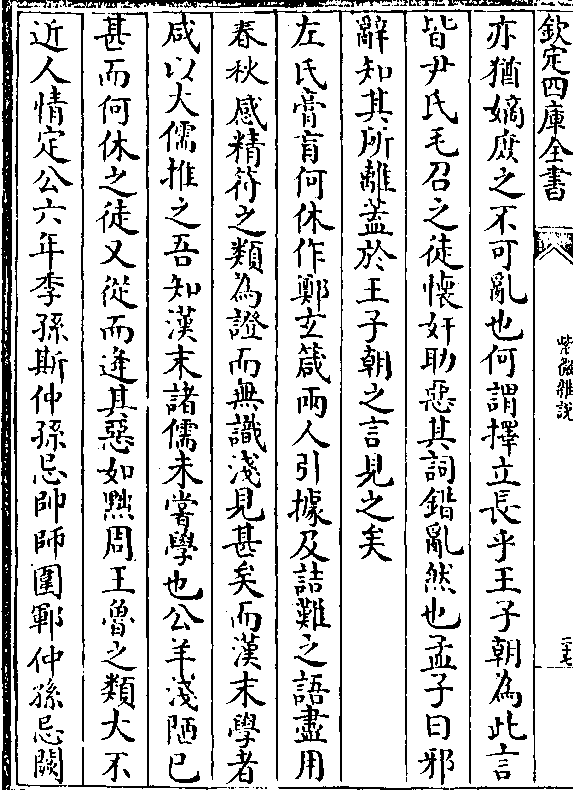 欽定四庫全書
紫微雜說
二七
亦猶嫡庶之不可亂也何謂擇立長乎王子朝為此言
皆尹氏毛召之徒懷奸助惡其詞錯亂然也孟子曰邪
辭知其所離蓋於王子朝之言見之矣
左氏膏肓何休作鄭玄箴兩人引據及詰難之語盡用
春秋感精符之類為證而無識淺見甚矣而漢末學者
咸以大儒推之吾知漢末諸儒未嘗學也公羊淺陋已
甚而何休之徒又從而逢其惡如黜周王魯之類大不
近人情定公六年季孫斯仲孫忌帥師圍鄆仲孫忌闕